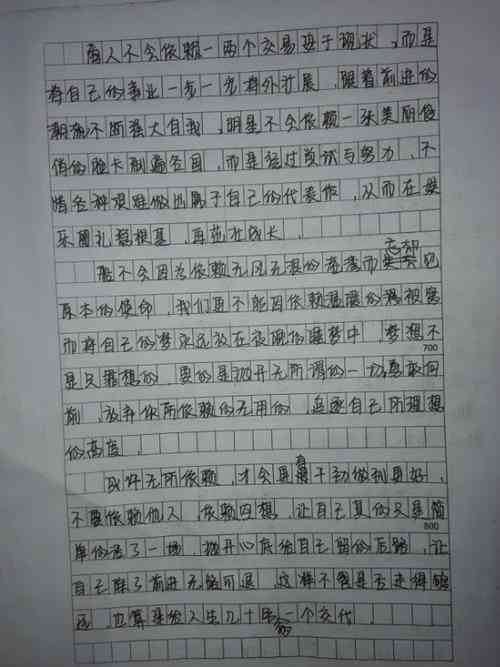 商人不会依赖一两个交易安于现状,而是
将自己的事业一步一步向外扩展,跟着前进的
潮流不断强大自我,明星不会依赖一张美丽俊
俏的脸卡刷遍各国,而是经过尝试与努力,不
惜各种艰难做出属于自己的代表作,从而在娱
乐圈扎稳根基,再茁壮成长。
船不会因为依赖无风无浪的港湾而忘却
原本的使命,我们更不能因依赖温暖的棉被窝
而将自己的梦永远放在夜晚的睡梦中,梦想不
是只靠想的,要的是抛开无所谓的一切,勇敢向
前,放弃你所依赖的无用的,追逐自己所理想
700
的高度。
或许无所依赖,才会是有干劲做到更好,
不要依赖他人,依赖回想,让自己真的只是简
800
单的活了一场,抛开心底给自己留的后路,让
自己除了前进无路可退,这样不管是否走得够
远,也算是给人生几十年一个交代